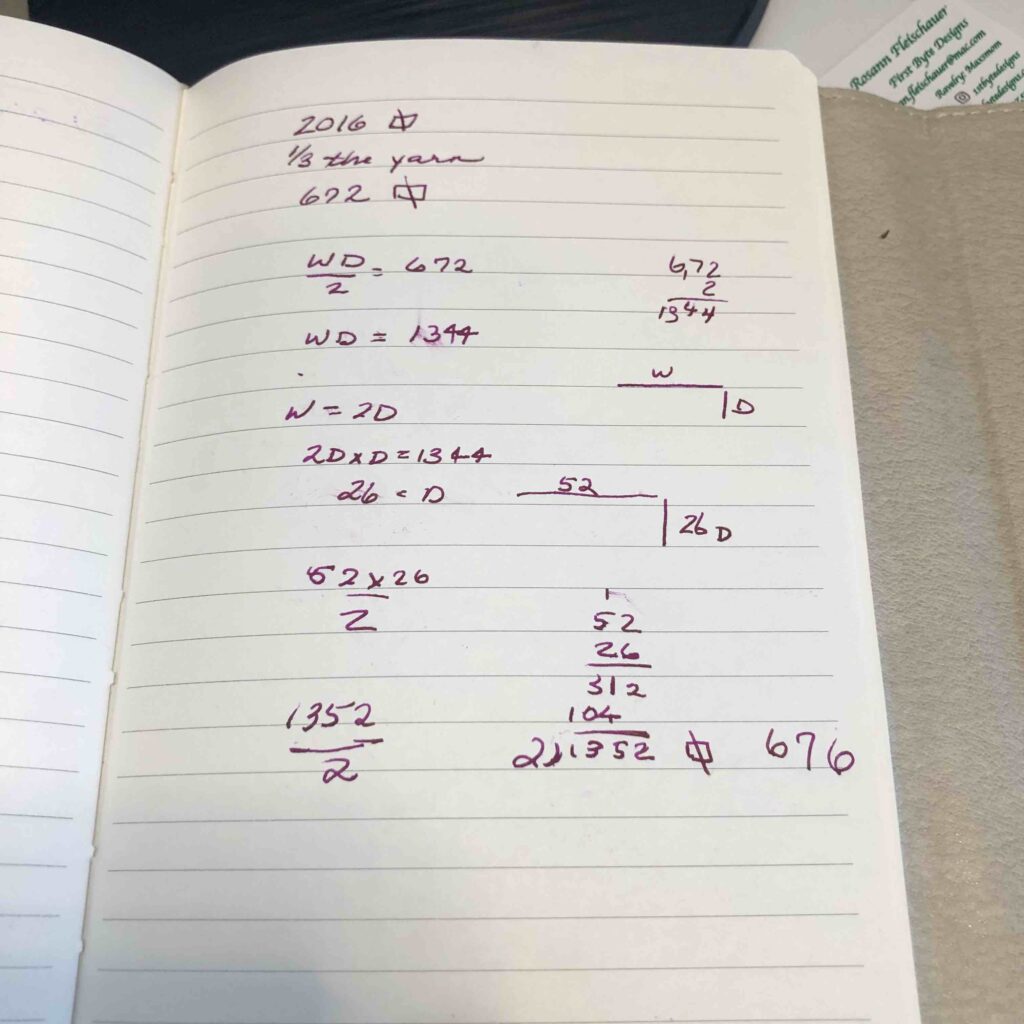 Rosann Fleischauer
First Byte Designs
n.fleischauer@mac.com
Ravelry: Maxsmom
1stbytedesigns
bytedesigns.
2016
1/3 the yarn
672
WD/2 = 672
6,72
2
1344
WD = 1344
W
D
W = 2D
2D x D = 1344
26 = D
52
26 D
52 x 26
2
1
52
26
312
104
1352
2
2)1352
676